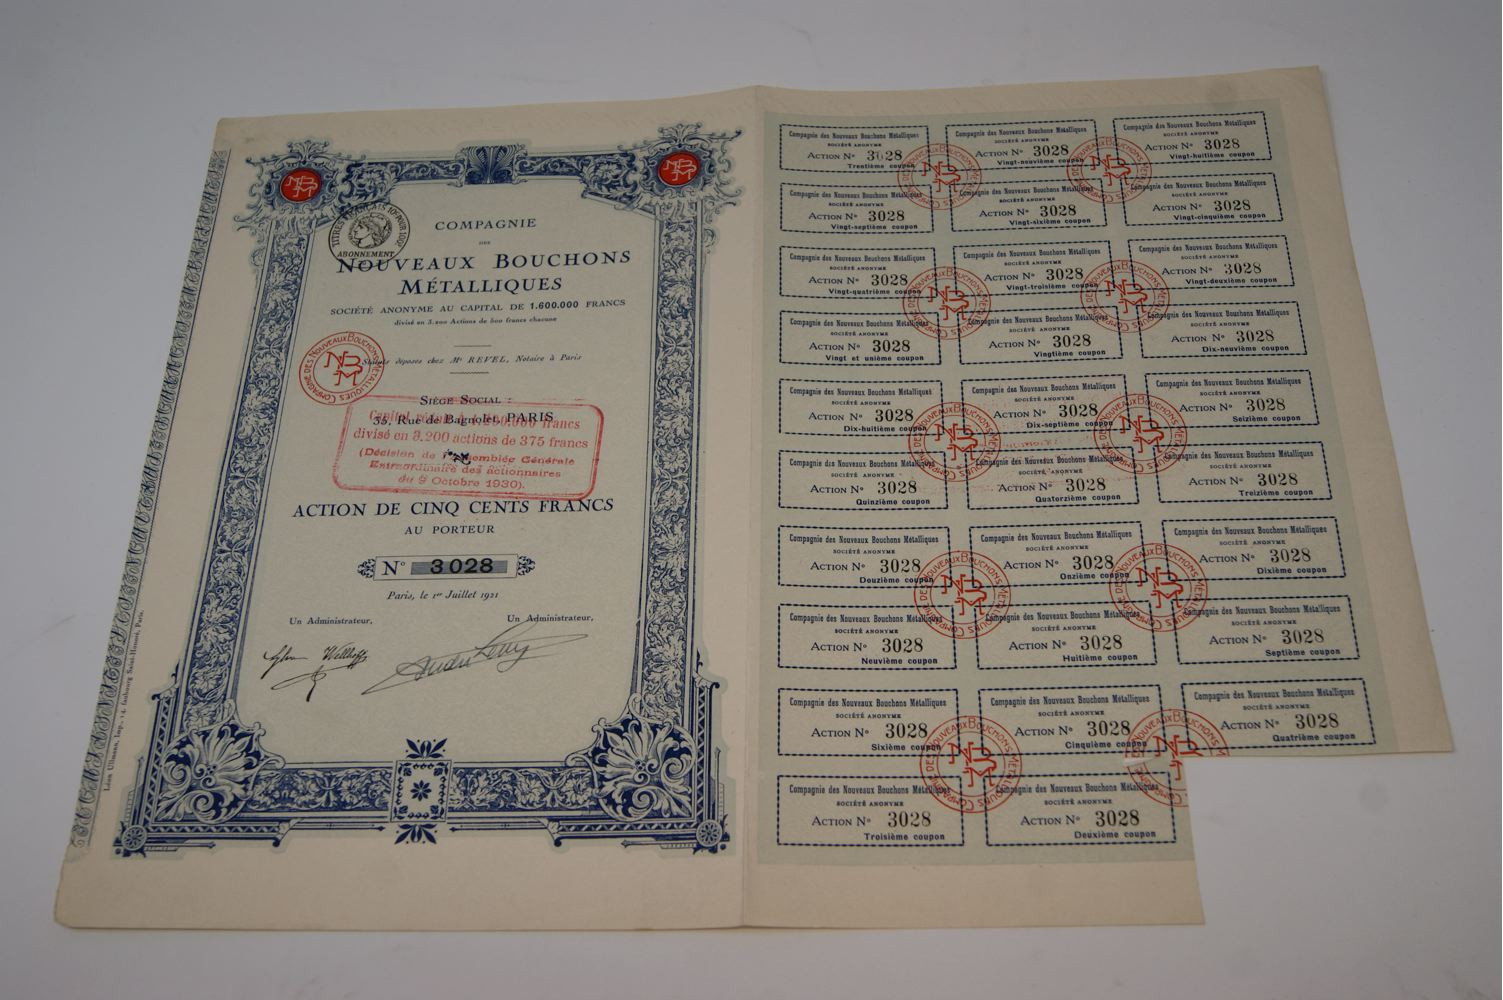 COMPAGNIE
DES
NOUVEAUX BOUCHONS
MÉTALLIQUES
SOCIÉTÉ ANONYME AU CAPITAL DE 1.600.000 FRANCS
divisé en 3.200 Actions de 500 francs chacune
Statuts déposés chez Me REVEL, Notaire à Paris
SIÈGE SOCIAL :
35, Rue de Bagnolet PARIS
Capital réduit à 1.200.000 francs
divisé en 3.200 actions de 375 francs
(Décision de l'Assemblée Générale
Extraordinaire des actionnaires
du 9 Octobre 1930).
ACTION DE CINQ CENTS FRANCS
AU PORTEUR
No 3028
Paris, le 1er Juillet 1921
Un Administrateur,
Un Administrateur,
ABONNEMENT
COMPAGNIE DES NOUVEAUX BOUCHONS MÉTALLIQUES
NBM
Léon Ullmann, Imp. - 14, faubourg Saint-Honoré, Paris.
Compagnie des Nouveaux Bouchons Métalliques
SOCIÉTÉ ANONYME
ACTION No 3028
Trentième coupon
Compagnie des Nouveaux Bouchons Métalliques
SOCIÉTÉ ANONYME
ACTION No 3028
Vingt-neuvième coupon
Compagnie des Nouveaux Bouchons Métalliques
SOCIÉTÉ ANONYME
ACTION No 3028
Vingt-huitième coupon
Compagnie des Nouveaux Bouchons Métalliques
SOCIÉTÉ ANONYME
ACTION No 3028
Vingt-septième coupon
Compagnie des Nouveaux Bouchons Métalliques
SOCIÉTÉ ANONYME
ACTION No 3028
Vingt-sixième coupon
Compagnie des Nouveaux Bouchons Métalliques
SOCIÉTÉ ANONYME
ACTION No 3028
Vingt-cinquième coupon
Compagnie des Nouveaux Bouchons Métalliques
SOCIÉTÉ ANONYME
ACTION No 3028
Vingt-quatrième coupon
Compagnie des Nouveaux Bouchons Métalliques
SOCIÉTÉ ANONYME
ACTION No 3028
Vingt-troisième coupon
Compagnie des Nouveaux Bouchons Métalliques
SOCIÉTÉ ANONYME
ACTION No 3028
Vingt-deuxième coupon
Compagnie des Nouveaux Bouchons Métalliques
SOCIÉTÉ ANONYME
ACTION No 3028
Vingt et unième coupon
Compagnie des Nouveaux Bouchons Métalliques
SOCIÉTÉ ANONYME
ACTION No 3028
Vingtième coupon
Compagnie des Nouveaux Bouchons Métalliques
SOCIÉTÉ ANONYME
ACTION No 3028
Dix-neuvième coupon
Compagnie des Nouveaux Bouchons Métalliques
SOCIÉTÉ ANONYME
ACTION No 3028
Dix-huitième coupon
Compagnie des Nouveaux Bouchons Métalliques
SOCIÉTÉ ANONYME
ACTION No 3028
Dix-septième coupon
Compagnie des Nouveaux Bouchons Métalliques
SOCIÉTÉ ANONYME
ACTION No 3028
Seizième coupon
Compagnie des Nouveaux Bouchons Métalliques
SOCIÉTÉ ANONYME
ACTION No 3028
Quinzième coupon
Compagnie des Nouveaux Bouchons Métalliques
SOCIÉTÉ ANONYME
ACTION No 3028
Quatorzième coupon
Compagnie des Nouveaux Bouchons Métalliques
SOCIÉTÉ ANONYME
ACTION No 3028
Treizième coupon
Compagnie des Nouveaux Bouchons Métalliques
SOCIÉTÉ ANONYME
ACTION No 3028
Douzième coupon
Compagnie des Nouveaux Bouchons Métalliques
SOCIÉTÉ ANONYME
ACTION No 3028
Onzième coupon
Compagnie des Nouveaux Bouchons Métalliques
SOCIÉTÉ ANONYME
ACTION No 3028
Dixième coupon
Compagnie des Nouveaux Bouchons Métalliques
SOCIÉTÉ ANONYME
ACTION No 3028
Neuvième coupon
Compagnie des Nouveaux Bouchons Métalliques
SOCIÉTÉ ANONYME
ACTION No 3028
Huitième coupon
Compagnie des Nouveaux Bouchons Métalliques
SOCIÉTÉ ANONYME
ACTION No 3028
Septième coupon
Compagnie des Nouveaux Bouchons Métalliques
SOCIÉTÉ ANONYME
ACTION No 3028
Sixième coupon
Compagnie des Nouveaux Bouchons Métalliques
SOCIÉTÉ ANONYME
ACTION No 3028
Cinquième coupon
Compagnie des Nouveaux Bouchons Métalliques
SOCIÉTÉ ANONYME
ACTION No 3028
Quatrième coupon
Compagnie des Nouveaux Bouchons Métalliques
SOCIÉTÉ ANONYME
ACTION No 3028
Troisième coupon
Compagnie des Nouveaux Bouchons Métalliques
SOCIÉTÉ ANONYME
ACTION No 3028
Deuxième coupon